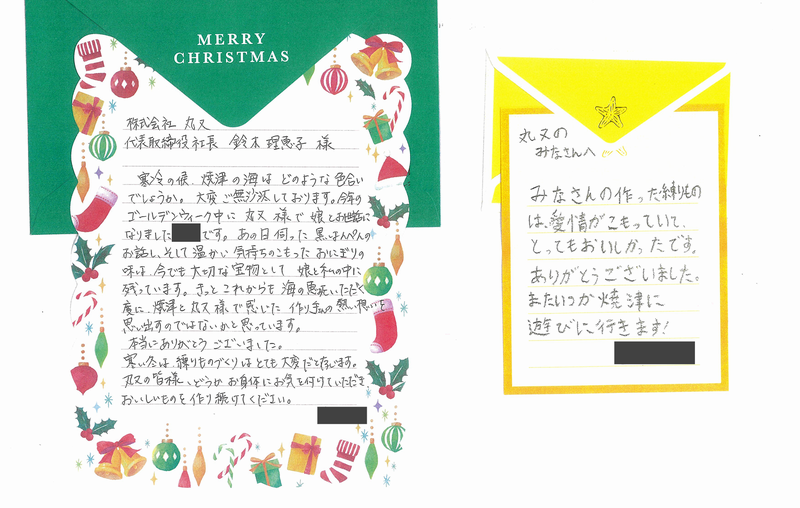 MERRY
CHRISTMAS
株式会社 丸又
代表取締役社長 鈴木 理恵子 様
寒冷の候、焼津の海は どのような 色合い
でしょうか。大変 ご無沙汰しております。今年の
ゴールデンウィーク中に 丸又 様で 娘とお世話に
なりました です。あの日 伺った 黒はんぺんの
お話し、そして 温かい 気持ちのこもった おにぎりの
味は、今でも 大切な 宝物として 娘と私の中に
残っています。きっと これからも 海の恵みいただく
度に、焼津と 丸又 様で 感じた 作り手さんの 熱い想いを
思い出すのではないかと思っています。
本当に ありがとう ございました。
寒い冬は、練りものづくりは とても 大変だと存じます。
丸又の皆様、どうか お身体に お気を付けていただき
おいしいものを 作り続けてください。
丸又の
みなさんへ
みなさんの作った練りもの
は、愛情がこもっていて、
とってもおいしかったです。
ありがとうございました。
またいつか 焼津に
遊びに行きます!